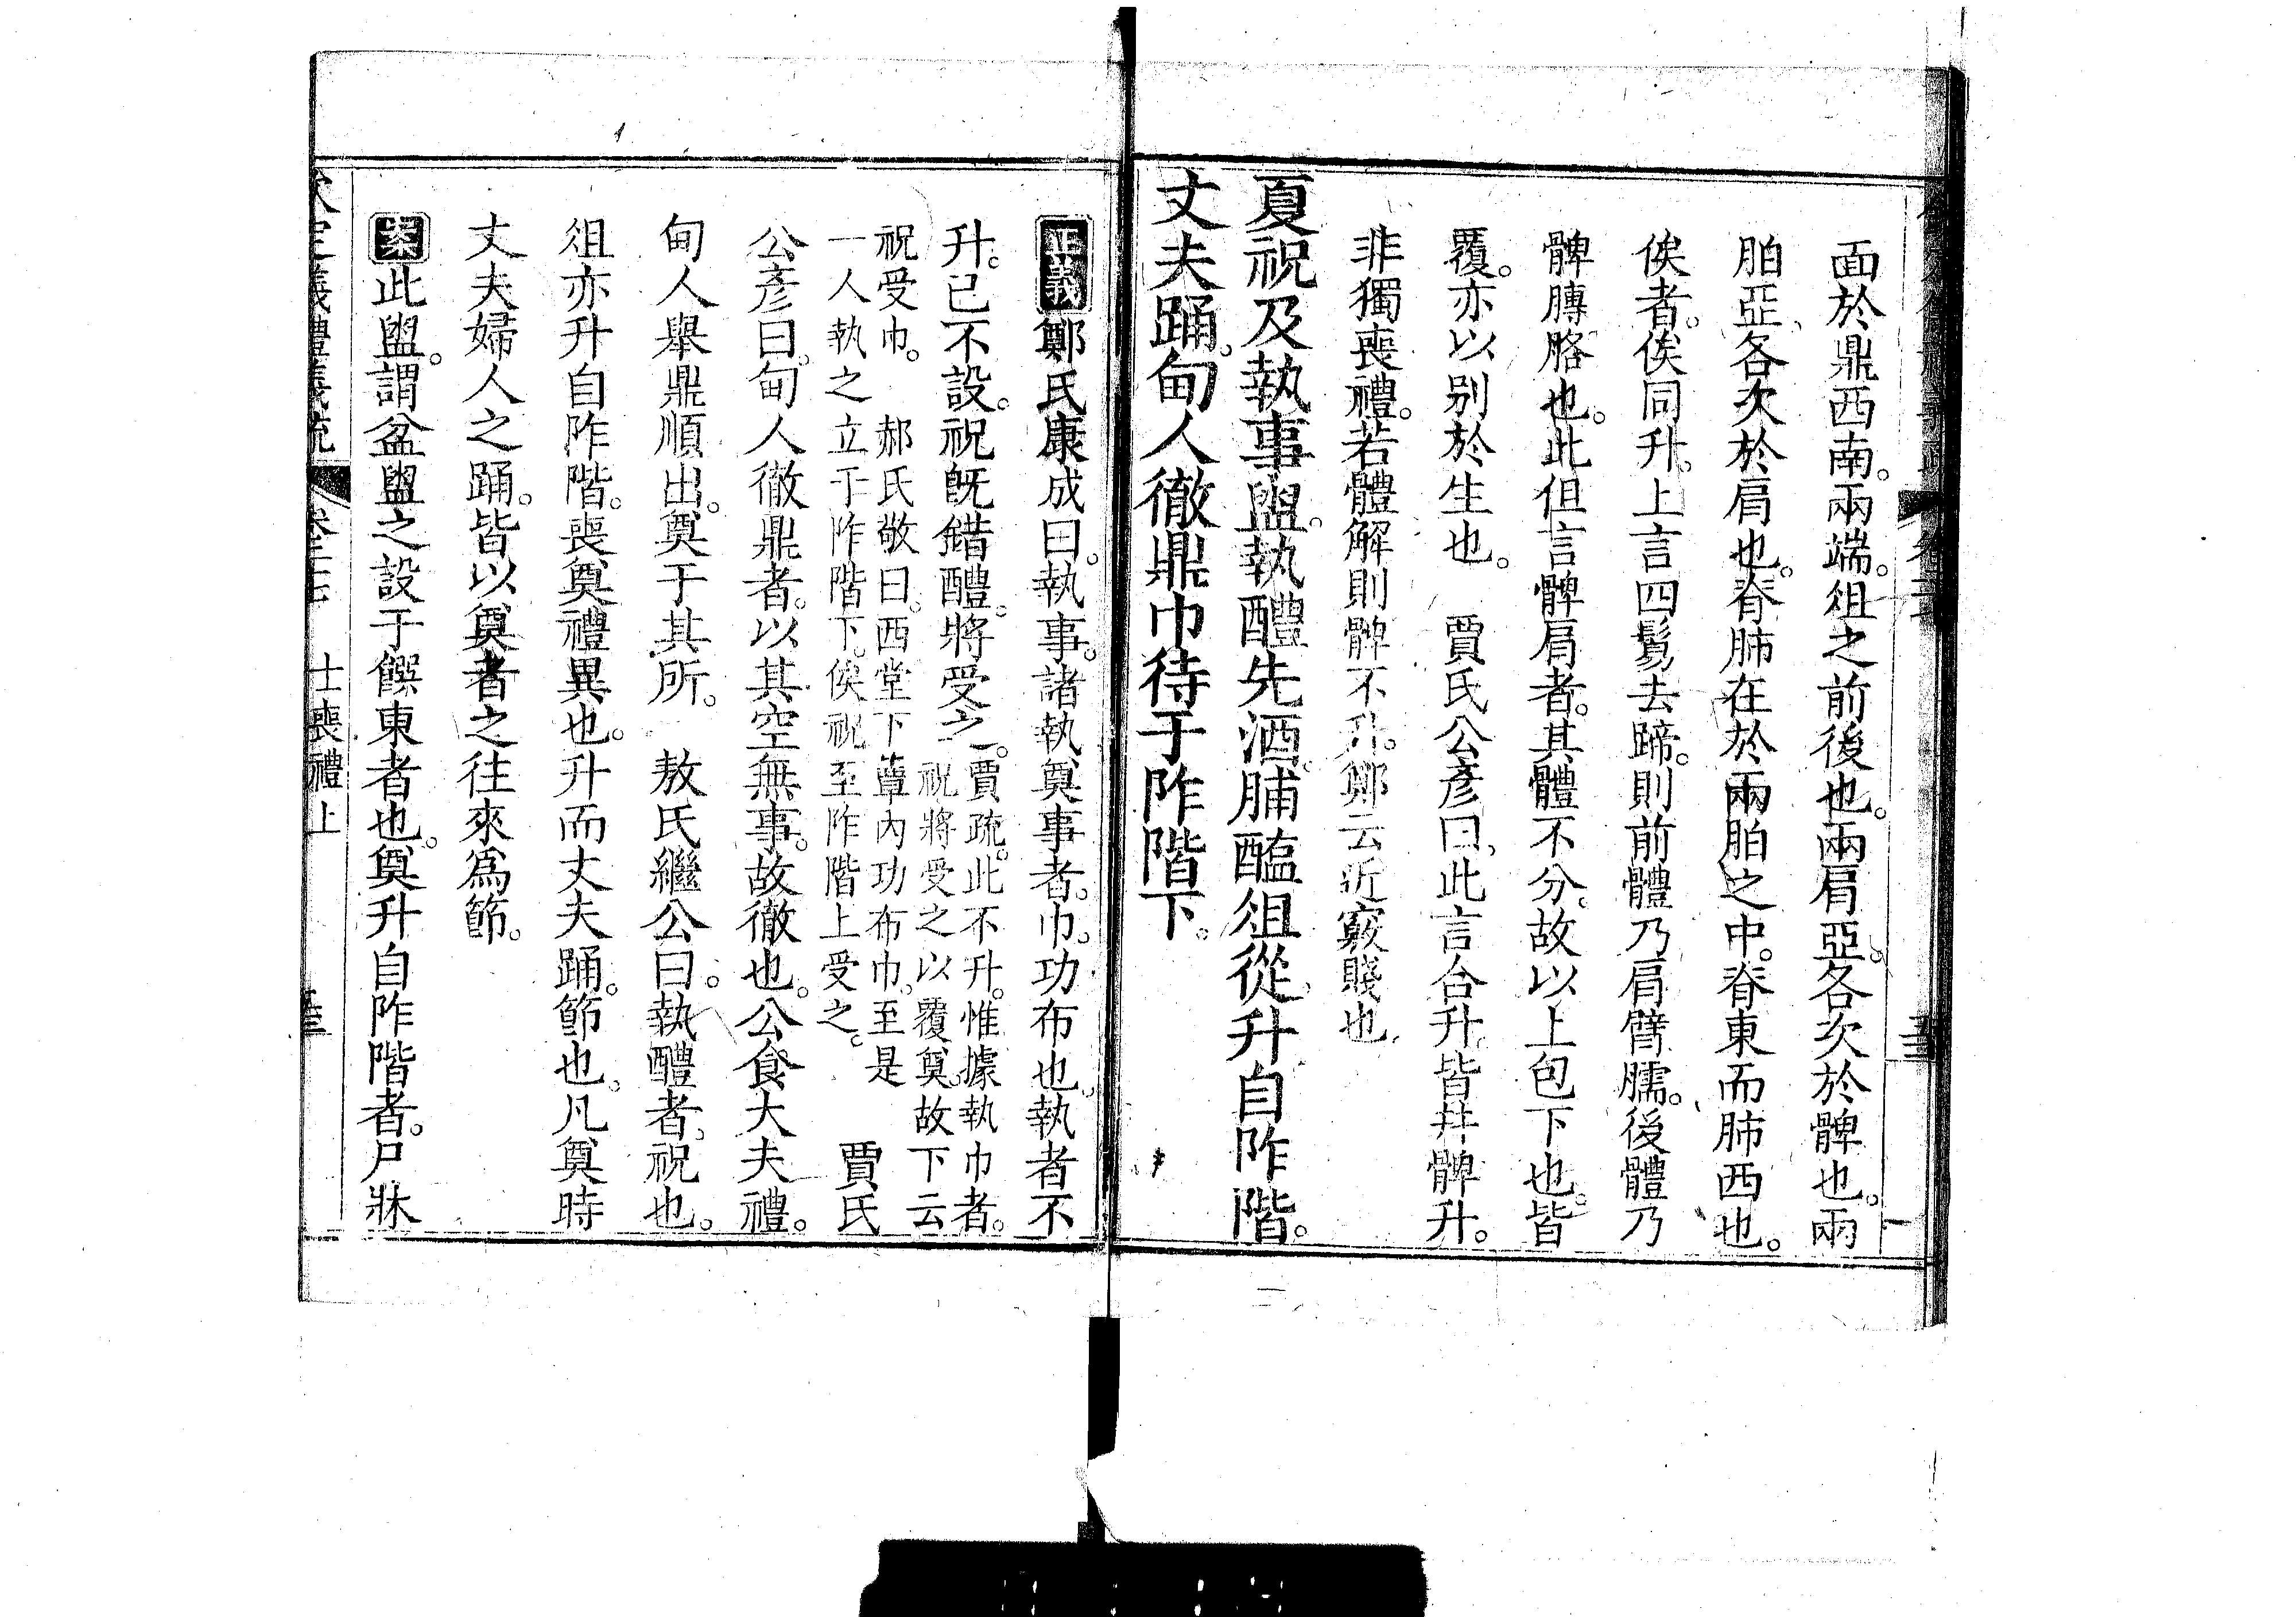 面於鼎西南。兩端。俎之前後也。兩肩亞。各次於髀也。兩
胉亞。各次於肩也。脊肺在於兩胉之中。脊東而肺西也。
俟者。俟同升。上言四鬄去蹄。則前體乃肩臂臑。後體乃
髀膞胳也。此但言髀肩者。其體不分。故以上包下也。皆
覆。亦以別於生也。 賈氏公彥曰。此言合升。皆幷髀升。
非獨喪禮。若體解則髀不升。鄭云近竅賤也
夏祝及執事盥。執醴先酒。脯醢俎從。升自阼階。
丈夫踊。甸人徹鼎巾待于阼階下。
正義鄭氏康成曰。執事。諸執奠事者。巾。功布也。執者不
升。已不設。祝旣錯醴。將受之。
賈疏。此不升。惟據執巾者。
祝將受之以覆奠。故下云
祝受巾。 郝氏敬曰。西堂下簟內功布巾。至是
一人執之立于阼階下。俟祝至阼階上受之。
賈氏
公彥曰。甸人徹鼎者。以其空無事。故徹也。公食大夫禮。
甸人舉鼎順出。奠于其所。 敖氏繼公曰。執醴者。祝也。
俎亦升自阼階。喪奠禮異也。升而丈夫踊。節也。凡奠時
丈夫婦人之踊。皆以奠者之往來爲節。
案此盥。謂盆盥之設于饌東者也。奠升自阼階者。尸牀
欽定義禮義疏 卷二十七 士喪禮上